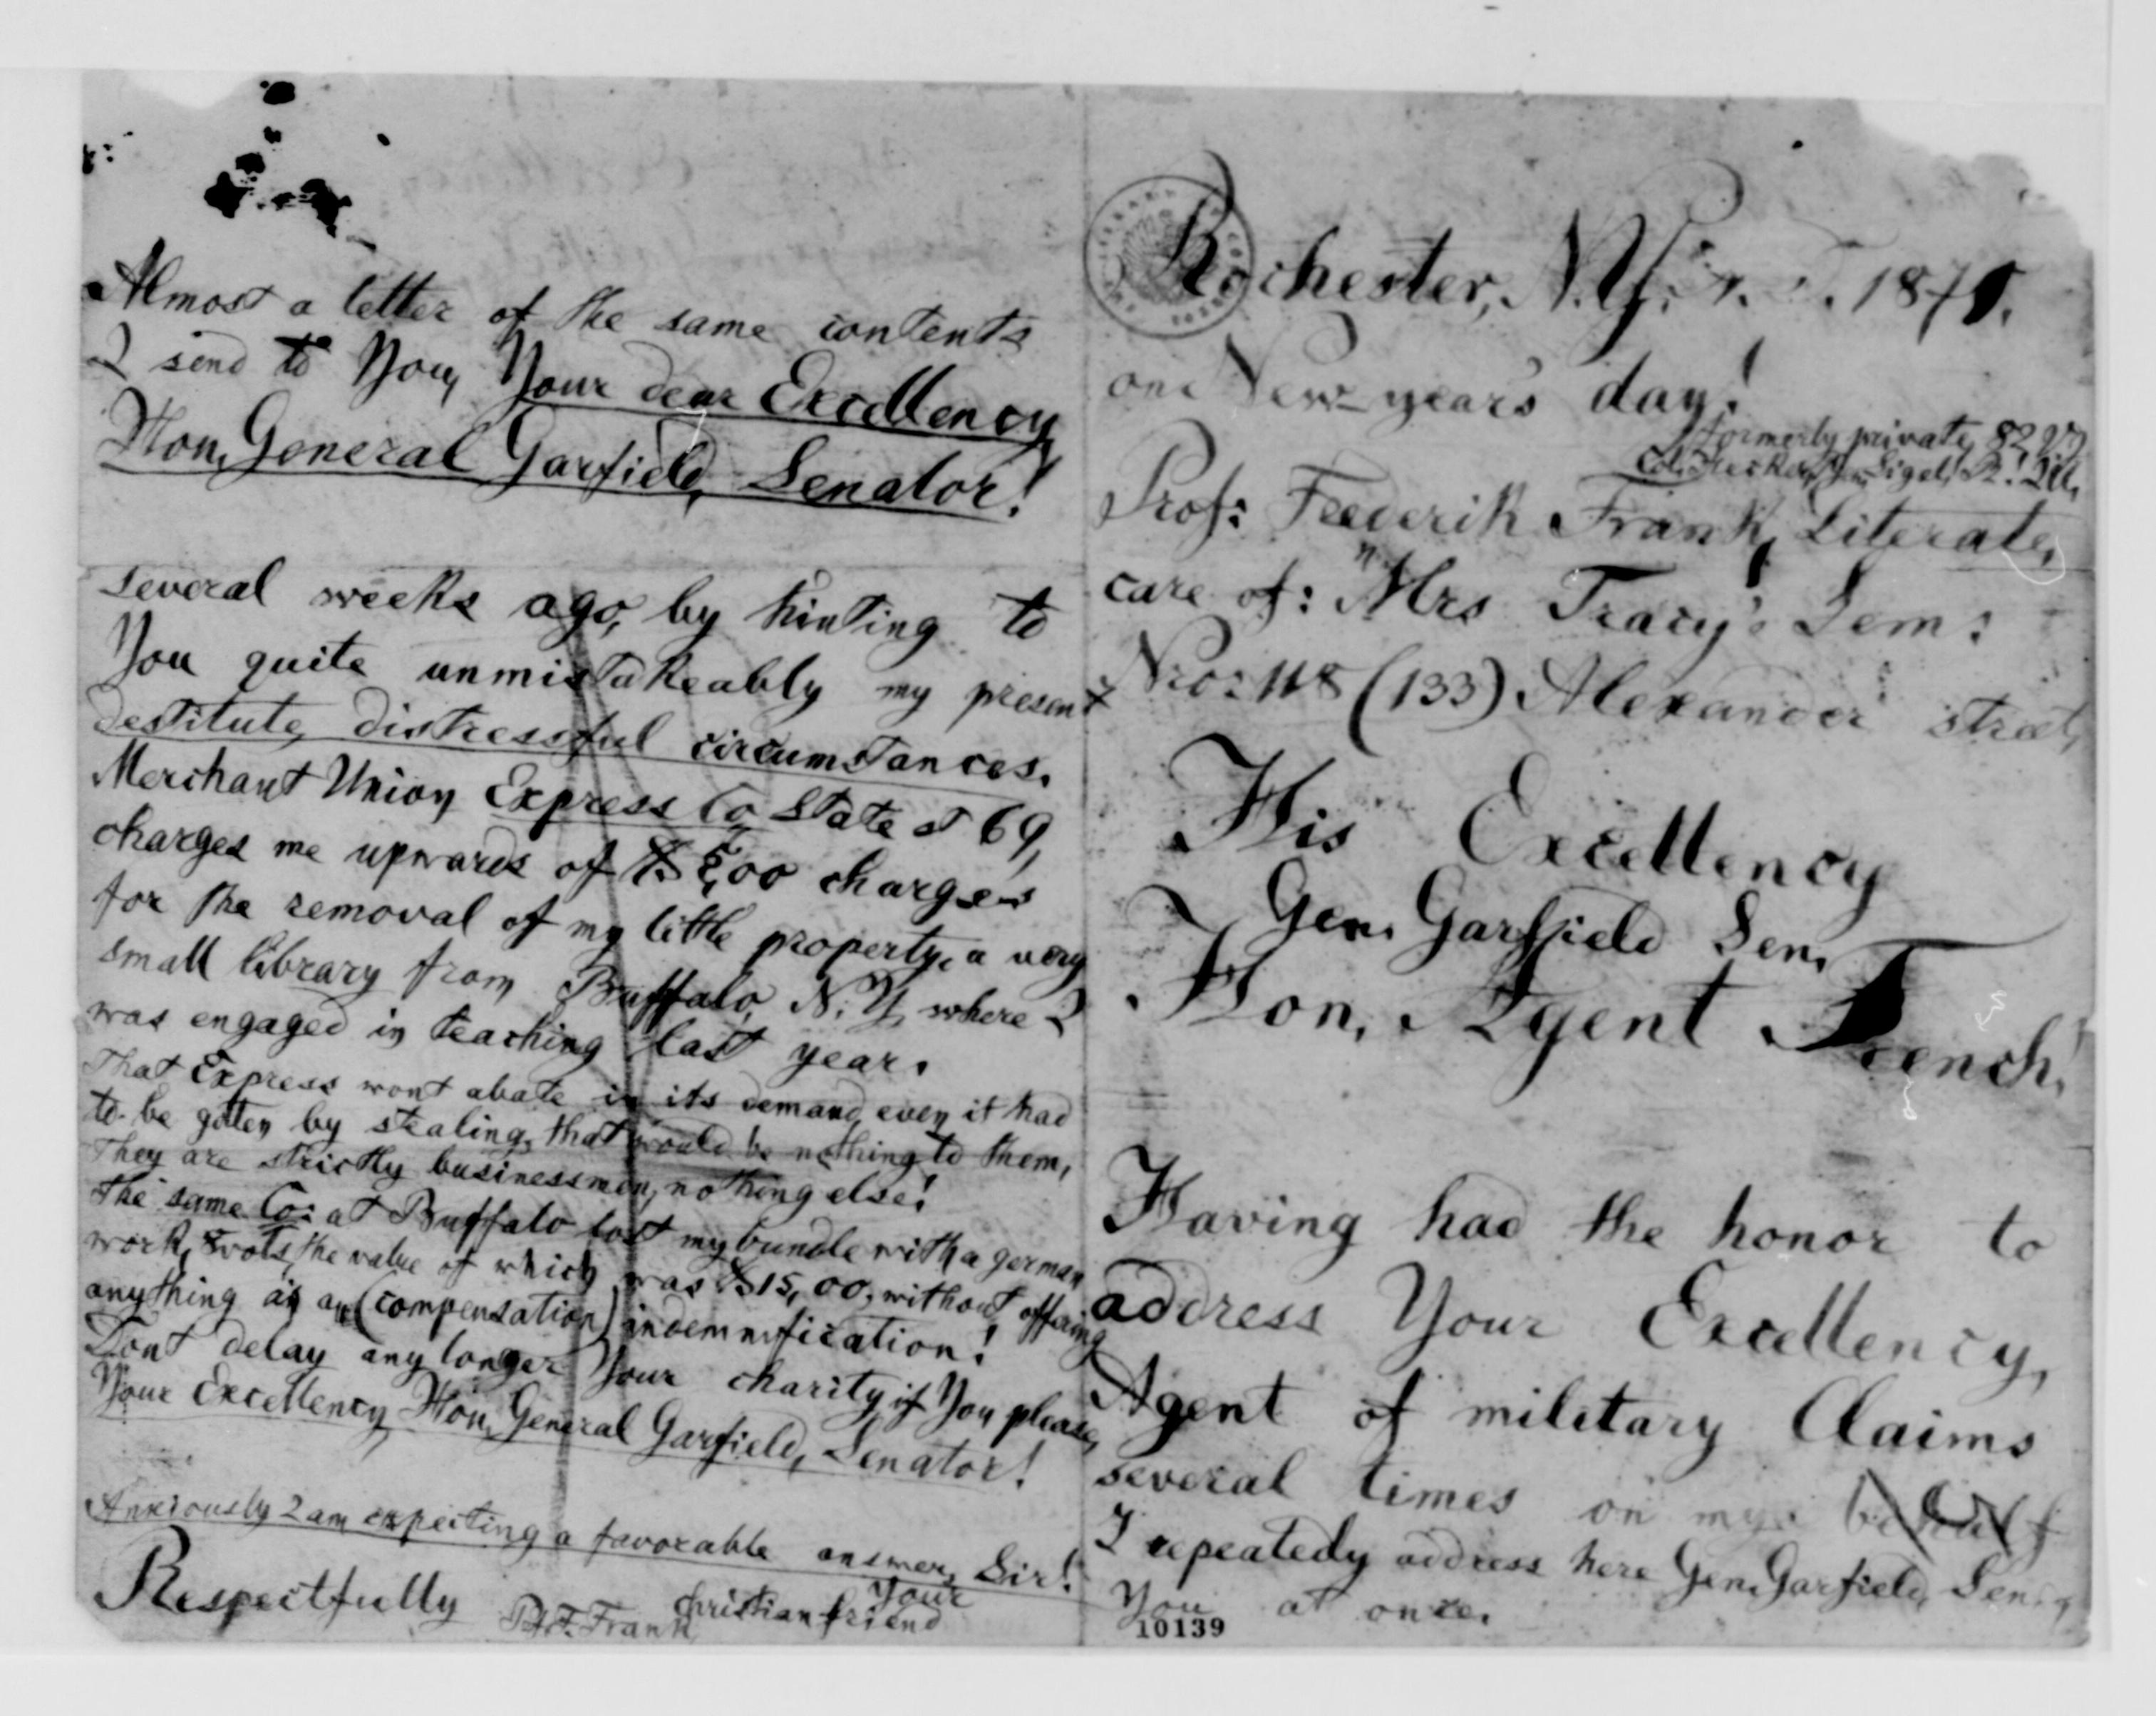 Rochester, N.Y. 1871.
on New-year's day!
formerly private, 82
Col. Hecker, Gen. Sigel, Ill.
Prof: Frederik Frank, Literate,
care of: "Mrs Tracy's Sem:
Nro: 118 (133) Alexander street,
His Excellency
Gen. Garfield Sen.
Hon. Agent French!
Having had the honor to
address Your Excellency,
Agent of military Claims
several times on my behalf
I repeatedly address here Gen. Garfield, Sen.
You at once.
10139
Almost a letter of the same contents
I send to You, Your dear Excellency
Hon. General Garfield, Senator!
several weeks ago, by hinting to
You quite unmistakeably my present
destitute, distressful circumstances.
Merchant Union Express Co State st 69,
charges me upwards of $ 5,00 charges
for the removal of my little property, a very
small library from Buffalo, N. Y, where I
was engaged in teaching last year.
That Express wont abate in its demand, even it had
to be goten by stealing, that would be nothing to them,
They are strictly businessmen, nothing else!
The same Co: at Buffalo lost my bundle with a german
work, vols, the value of which was $15,00, without offering
anything as an (compensation) indemnification!
Dont delay any longer Your charity if You please,
Your Excellency Hon. General Garfield, Senator!
Anxiously I am expecting a favorable answer, Sir!
Respectfully Your
christian friend
F. Frank